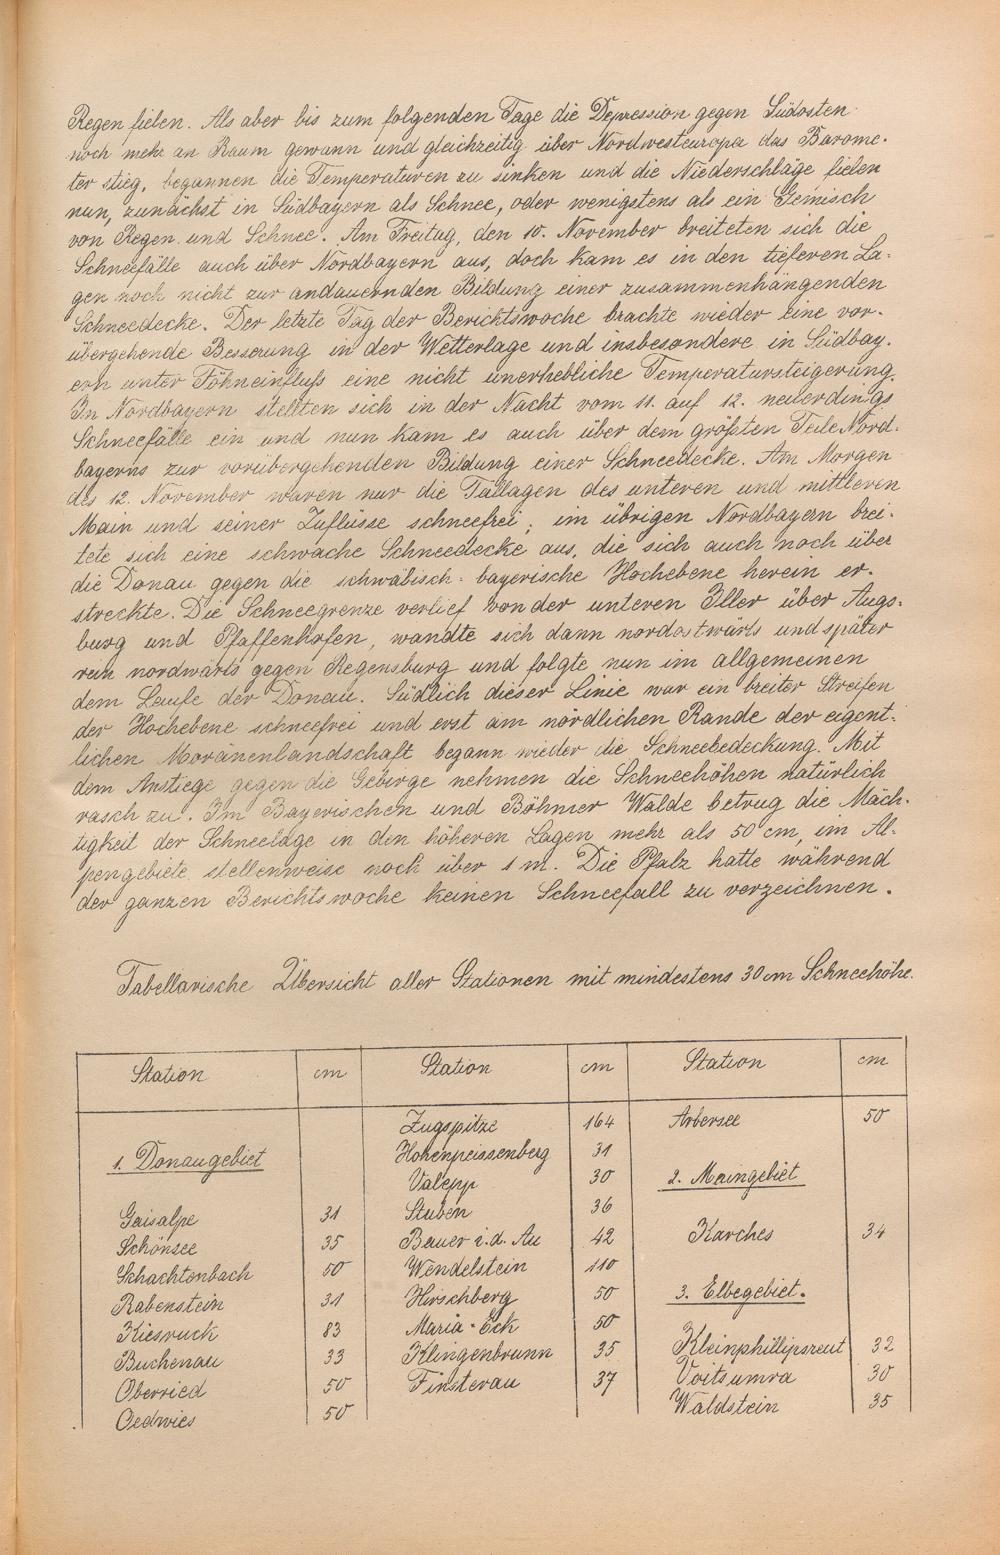 Regen fielen. Als aber bis zum folgenden Tage die Depression gegen Südosten
noch mehr an Raum gewann und gleichzeitig über Nordwesteuropa das Barome-
ter stieg, begannen die Temperaturen zu sinken und die Niederschläge fielen
nun, zunächst in Südbayern als Schnee, oder wenigstens als ein Gemisch
von Regen und Schnee. Am Freitag, den 10. November breiteten sich die
Schneefälle auch über Nordbayern aus, doch kam es in den tieferen La-
gen noch nicht zur andauernden Bildung einer zusammenhängenden
Schneedecke. Der letzte Tag der Berichtswoche brachte wieder eine vor-
übergehende Besserung in der Wetterlage und insbesondere in Südbay-
ern unter Föhneinfluss eine nicht unerhebliche Temperatursteigerung.
In Nordbayern stellten sich in der Nacht vom 11. auf 12. neuerdings
Schneefälle ein und nun kam es auch über dem größten Teile Nord-
bayerns zur vorübergehenden Bildung einer Schneedecke. Am Morgen
des 12. November waren nur die Tallagen des unteren und mittleren
Main und seiner Zuflüsse schneefrei; im übrigen Nordbayern brei-
tete sich eine schwache Schneedecke aus, die sich auch noch über
die Donau gegen die schwäbisch-bayerische Hochebene herein er-
streckte. Die Schneegrenze verlief von der unteren Iller über Augs-
burg und Pfaffenhofen, wandte sich dann nordostwärts und später
rein nordwärts gegen Regensburg und folgte nun im allgemeinen
dem Laufe der Donau. Südlich dieser Linie war ein breiter Streifen
der Hochebene schneefrei und erst am nördlichen Rande der eigent-
lichen Moränenlandschaft begann wieder die Schneebedeckung. Mit
dem Anstiege gegen die Gebirge nehmen die Schneehöhen natürlich
rasch zu. Im Bayerischen und Böhmer Walde betrug die Mäch-
tigkeit der Schneelage in den höheren Lagen mehr als 50 cm, im Al-
pengebiete stellenweise noch über 1 m. Die Pfalz hatte während
der ganzen Berichtswoche keinen Schneefall zu verzeichnen.
Tabellarische Übersicht aller Stationen mit mindestens 30 cm Schneehöhe.
Station cm Station cm Station cm
1. Donaugebiet
Gaisalpe 31
Schönsee 35
Schachtenbach 50
Rabenstein 31
Kiesruck 83
Buchenau 33
Oberried 50
Oedwies 50
Zugspitze 164
Hohenpeissenberg 31
Valepp 30
Stuben 36
Bauer i. d. Au 42
Wendelstein 110
Hirschberg 50
Maria-Eck 50
Klingenbrunn 35
Finsterau 37
Arbersee 50
2. Maingebiet
Karches 34
3. Elbegebiet.
Kleinphillipsreut 32
Voitsumra 30
Waldstein 35